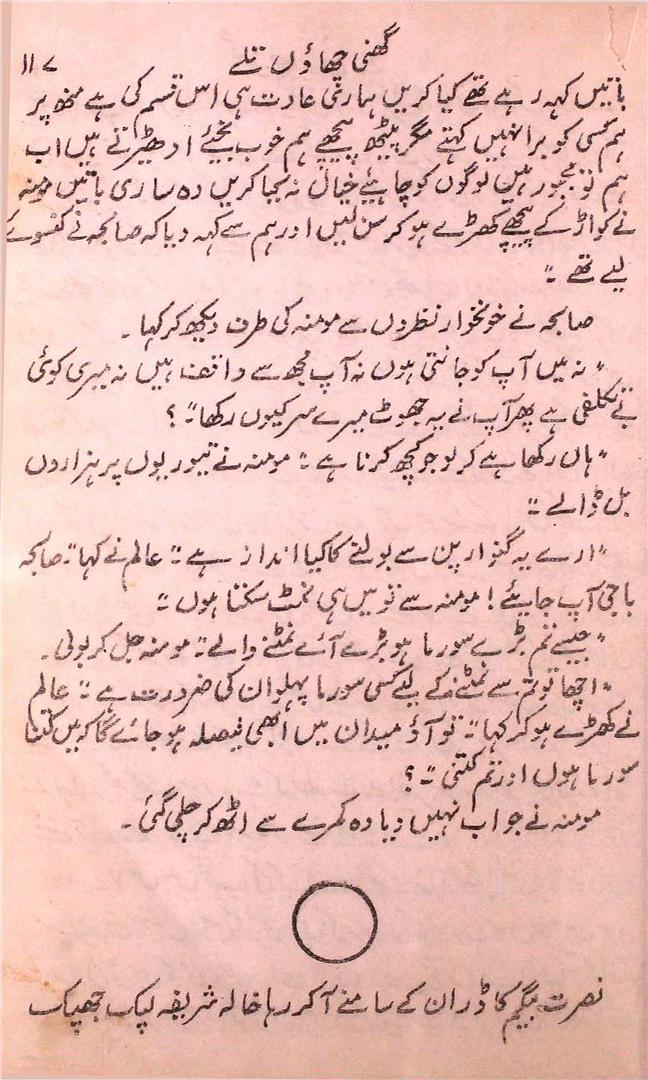 گھنی چھاؤں تلے
۱۱۷
باتیں کہہ رہے تھے کیا کریں ہماری عادت ہی اس قسم کی ہے منھ پر
ہم کسی کو برا نہیں کہتے مگر پیٹھ پیچھے ہم خوب بخیے ادھیڑتے ہیں اب
ہم تو مجبور ہیں لوگوں کو چاہیئے خیال نہ کیا کریں وہ ساری باتیں مومنہ
نے کواڑ کے پیچھے کھڑے ہو کر سن لیں اور ہم سے کہہ دیا کہ صالحہ نے کنسوے
لیے تھے ۔"
صالحہ نے خونخوار نظروں سے مومنہ کی طرف دیکھ کر کہا ۔
" نہ میں آپ کو جانتی ہوں نہ آپ مجھ سے واقف ہیں نہ میری کوئی
بے تکلفی ہے پھر آپ نے یہ جھوٹ میرے سر کیوں رکھا"؟
"ہاں رکھا ہے کر لو جو کچھ کرنا ہے ۔" مومنہ نے تیوریوں پر ہزاروں
بل ڈالے ۔"
"ارے یہ گنوار پن سے بولنے کا کیا انداز ہے ۔" عالم نے کہا "صالحہ
باجی آپ جایئے ! مومنہ سے تو میں ہی نمٹ سکتا ہوں ۔"
"جیسے تم بڑے سورما ہو بڑے آئے نمٹنے والے ۔" مومنہ جل کر بولی ۔
" اچھا تو تم سے نمٹنے کے لیے کسی سورما پہلوان کی ضرورت ہے ۔" عالم
نے کھڑے ہو کر کہا "تو آؤ میدان میں ابھی فیصلہ ہو جائے گا کہ میں کتنا
سورما ہوں اور تم کتنی ۔"؟
مومنہ نے جواب نہیں دیا وہ کمرے سے اٹھ کر چلی گئی ۔
نصرت بیگم کا ڈر ان کے سامنے آکر رہا خالہ شریفہ لپک جھپک